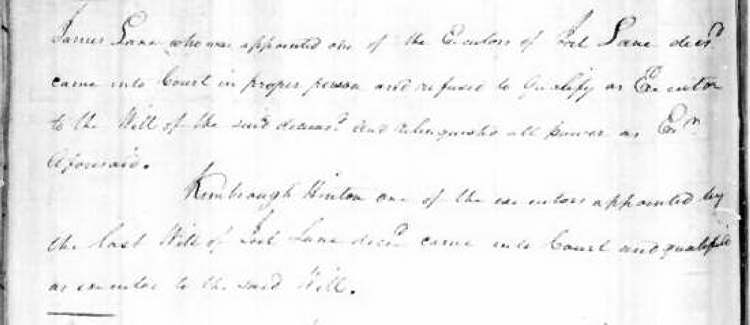 James Lane who was appointed one of the Executors of Joel Lane decsd
came into Court in proper person and refused to Qualify as Executor
to the Will of the said deceasd and relinquishd all power as Exr
aforesaid.
Kimbrough Hinton one of the executors appointed by
the last Will of Joel Lane decsd came into Court and qualified
as executor to the said Will.